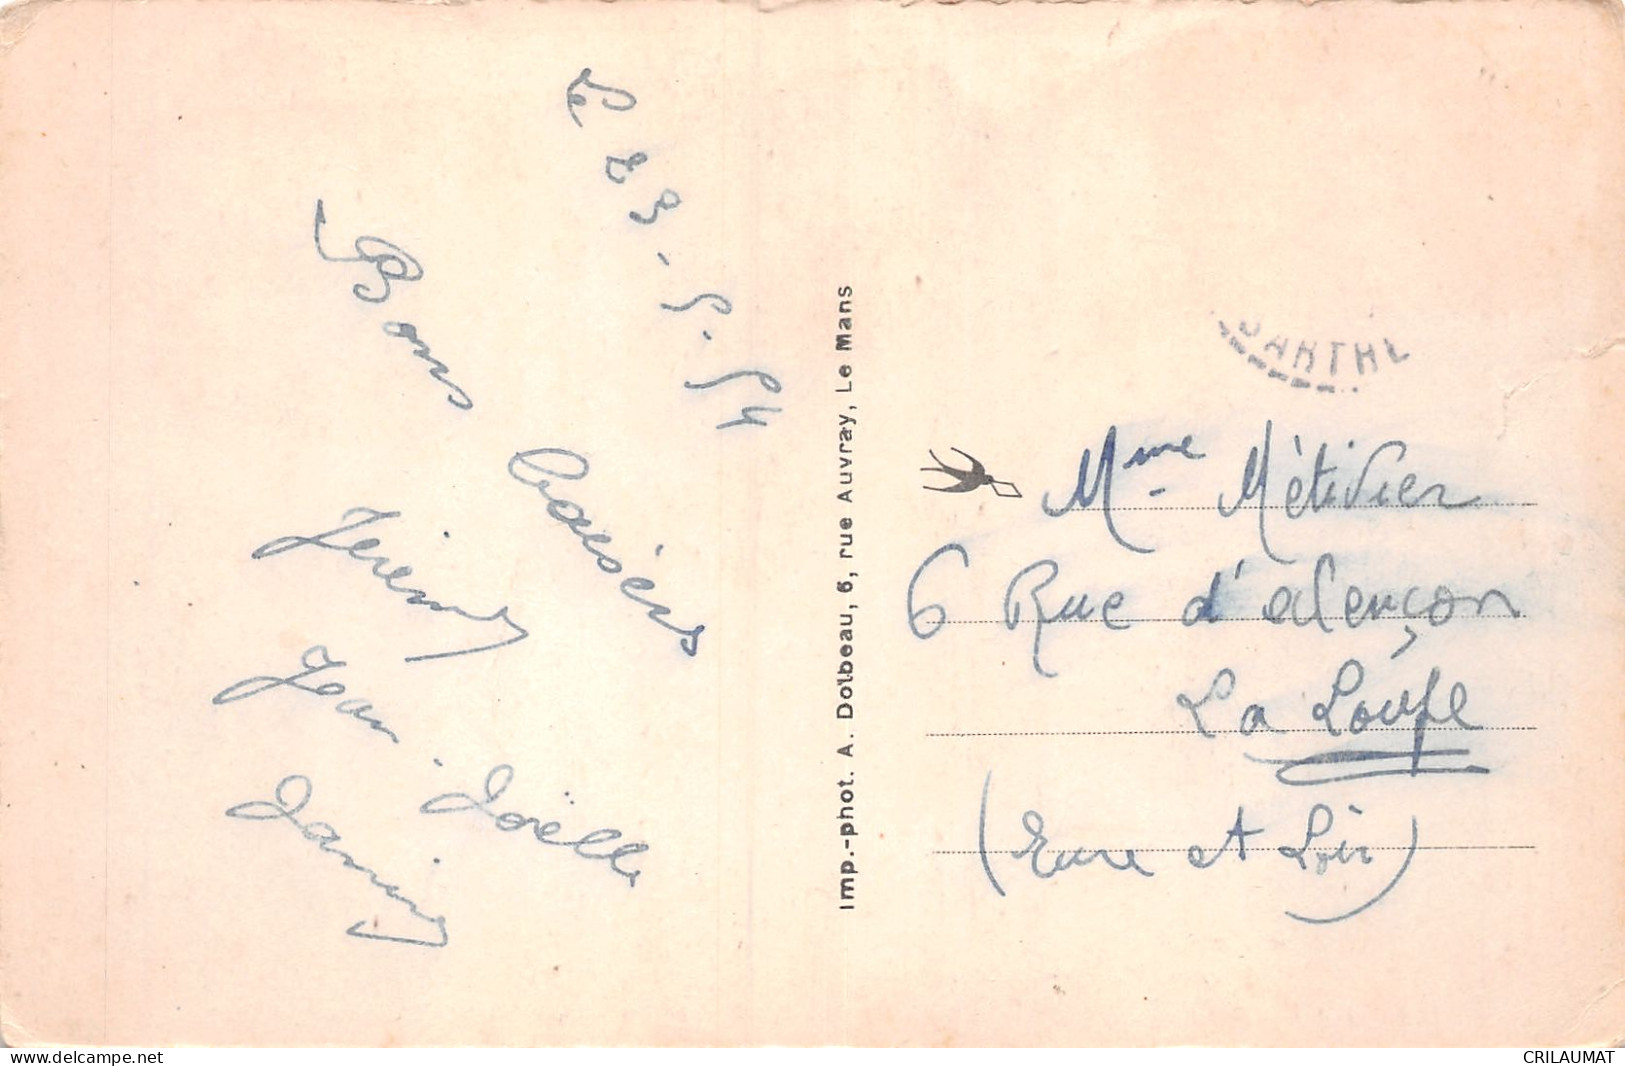 Le 23-5-54
Bons baisers
Jérémy
Jean. Joëlle
Imp.-phot. A. Dolbeau, 6, rue Auvray, Le Mans
SARTHE
Mme Métivier
6 Rue d'alençon
La Loupe
(Eure et Loir)
www.delcampe.net
CRILAUMAT